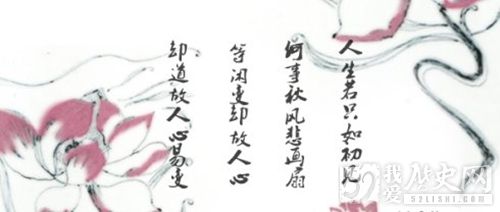 人生若只如初见
何事秋风悲画扇
等闲变却故人心
却道故人心易变
我爱历史网
52LISHI.COM